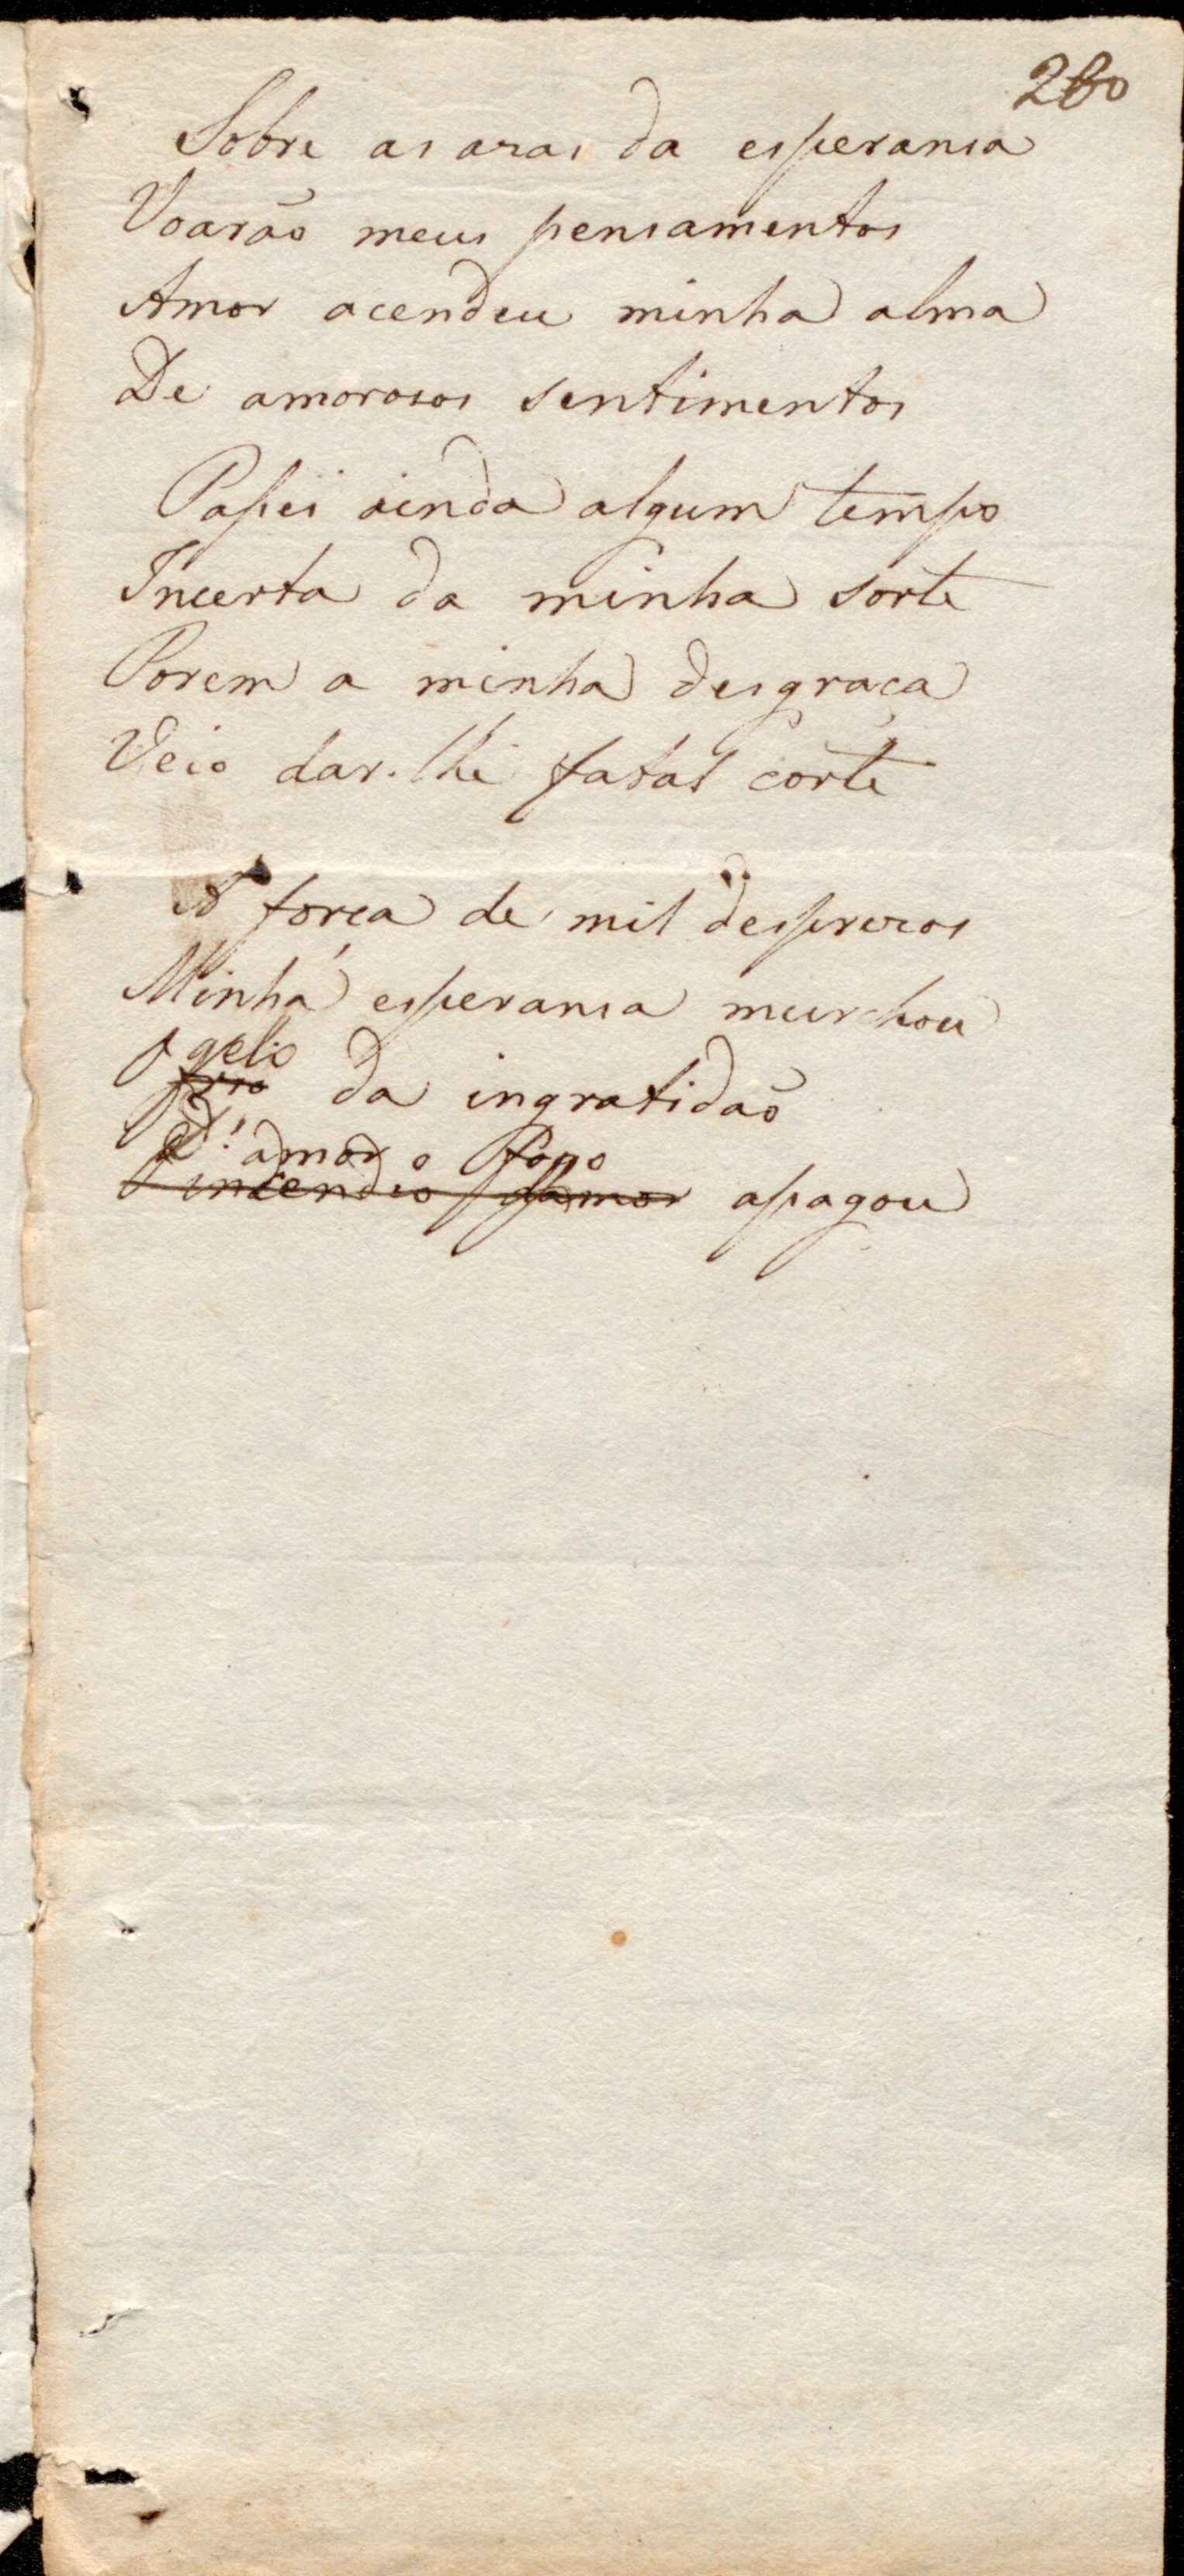 260
Sobre as azas da esperansa
Voarão meus pensamentos
Amor acendeu minha alma
De amorosos sentimentos
Passei ainda algum tempo
Incerta da minha sorte
Porem a minha desgraça
Veio dar-lhe fatal corte
A força de mil desprezos
Minha esperansa murchou
O gelo
frio da ingratidão
D'amor o fogo
O incendio d'amor apagou